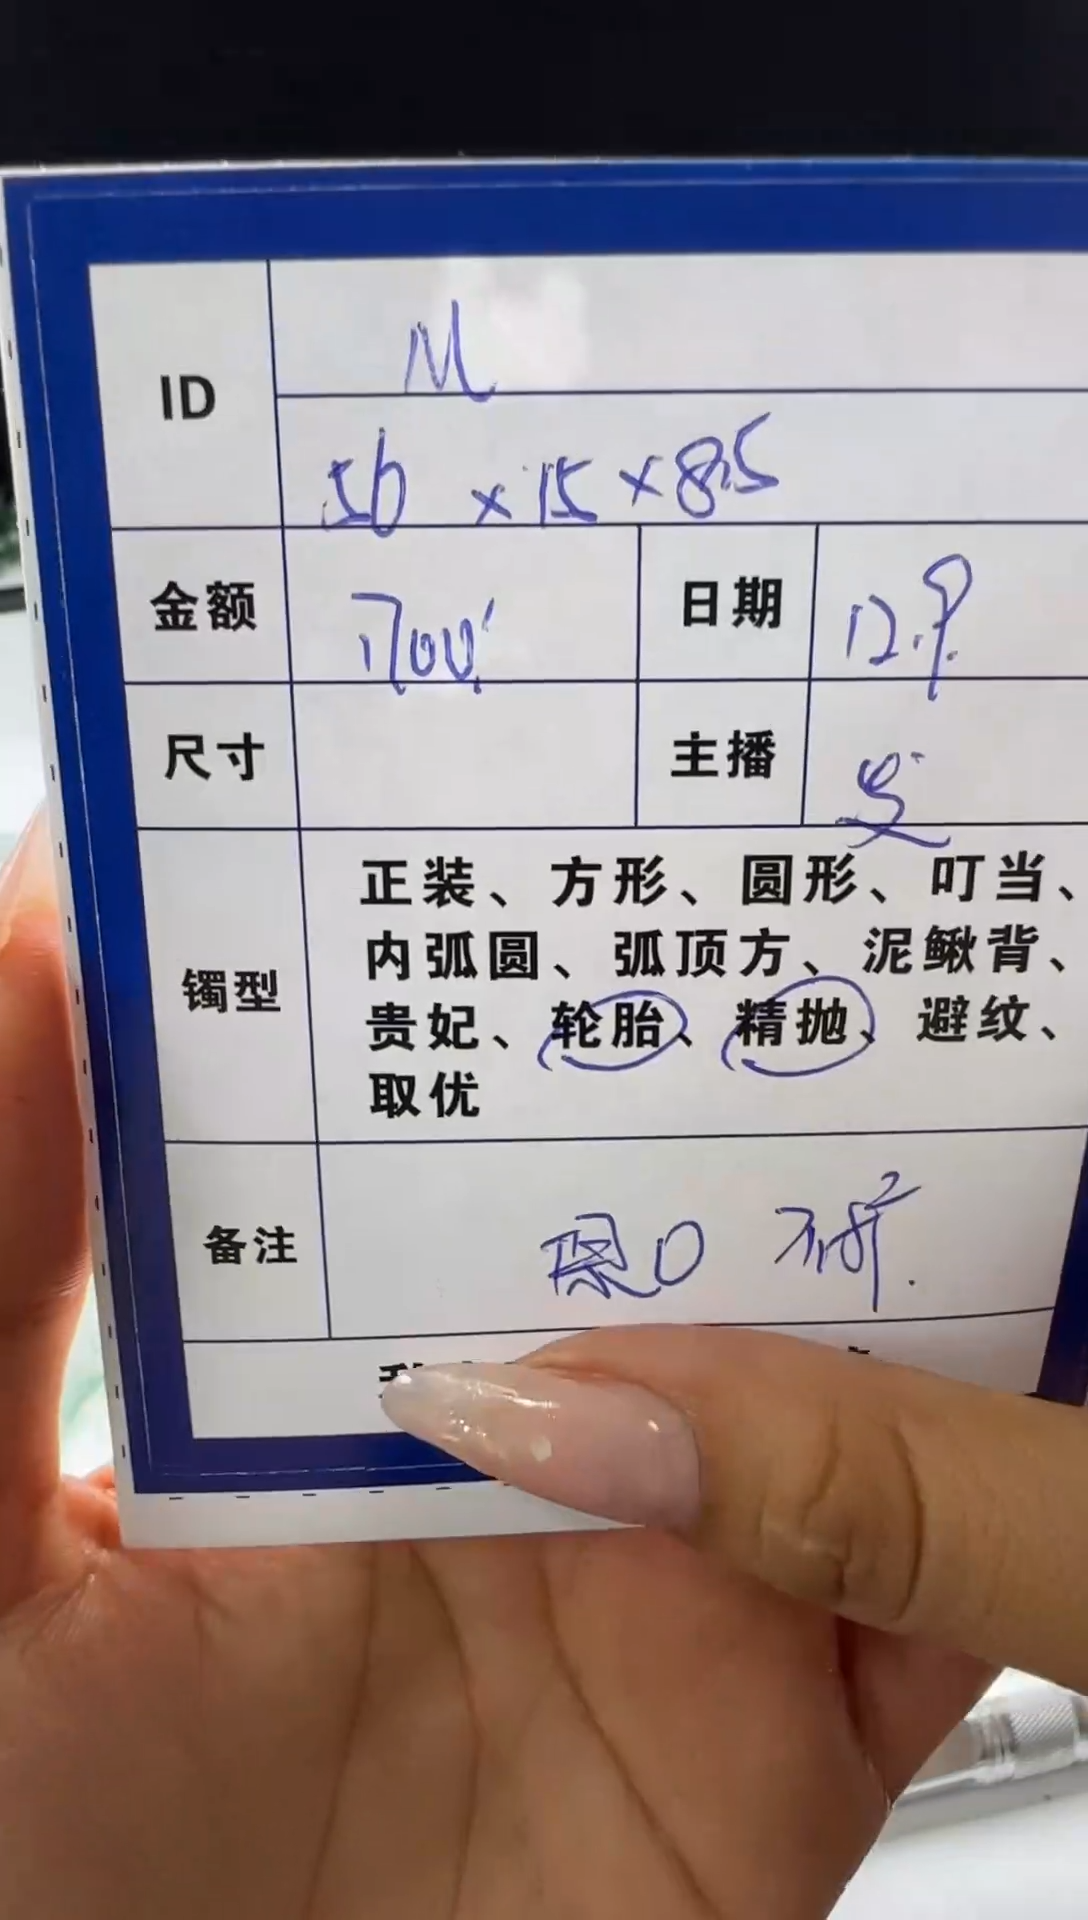 ID
M
56×15×8.5
金额 1700 日期 12.9
尺寸 主播
镯型
正装、方形、圆形、叮当、
内弧圆、弧顶方、泥鳅背、
贵妃、轮胎、精抛、避纹、
取优
备注